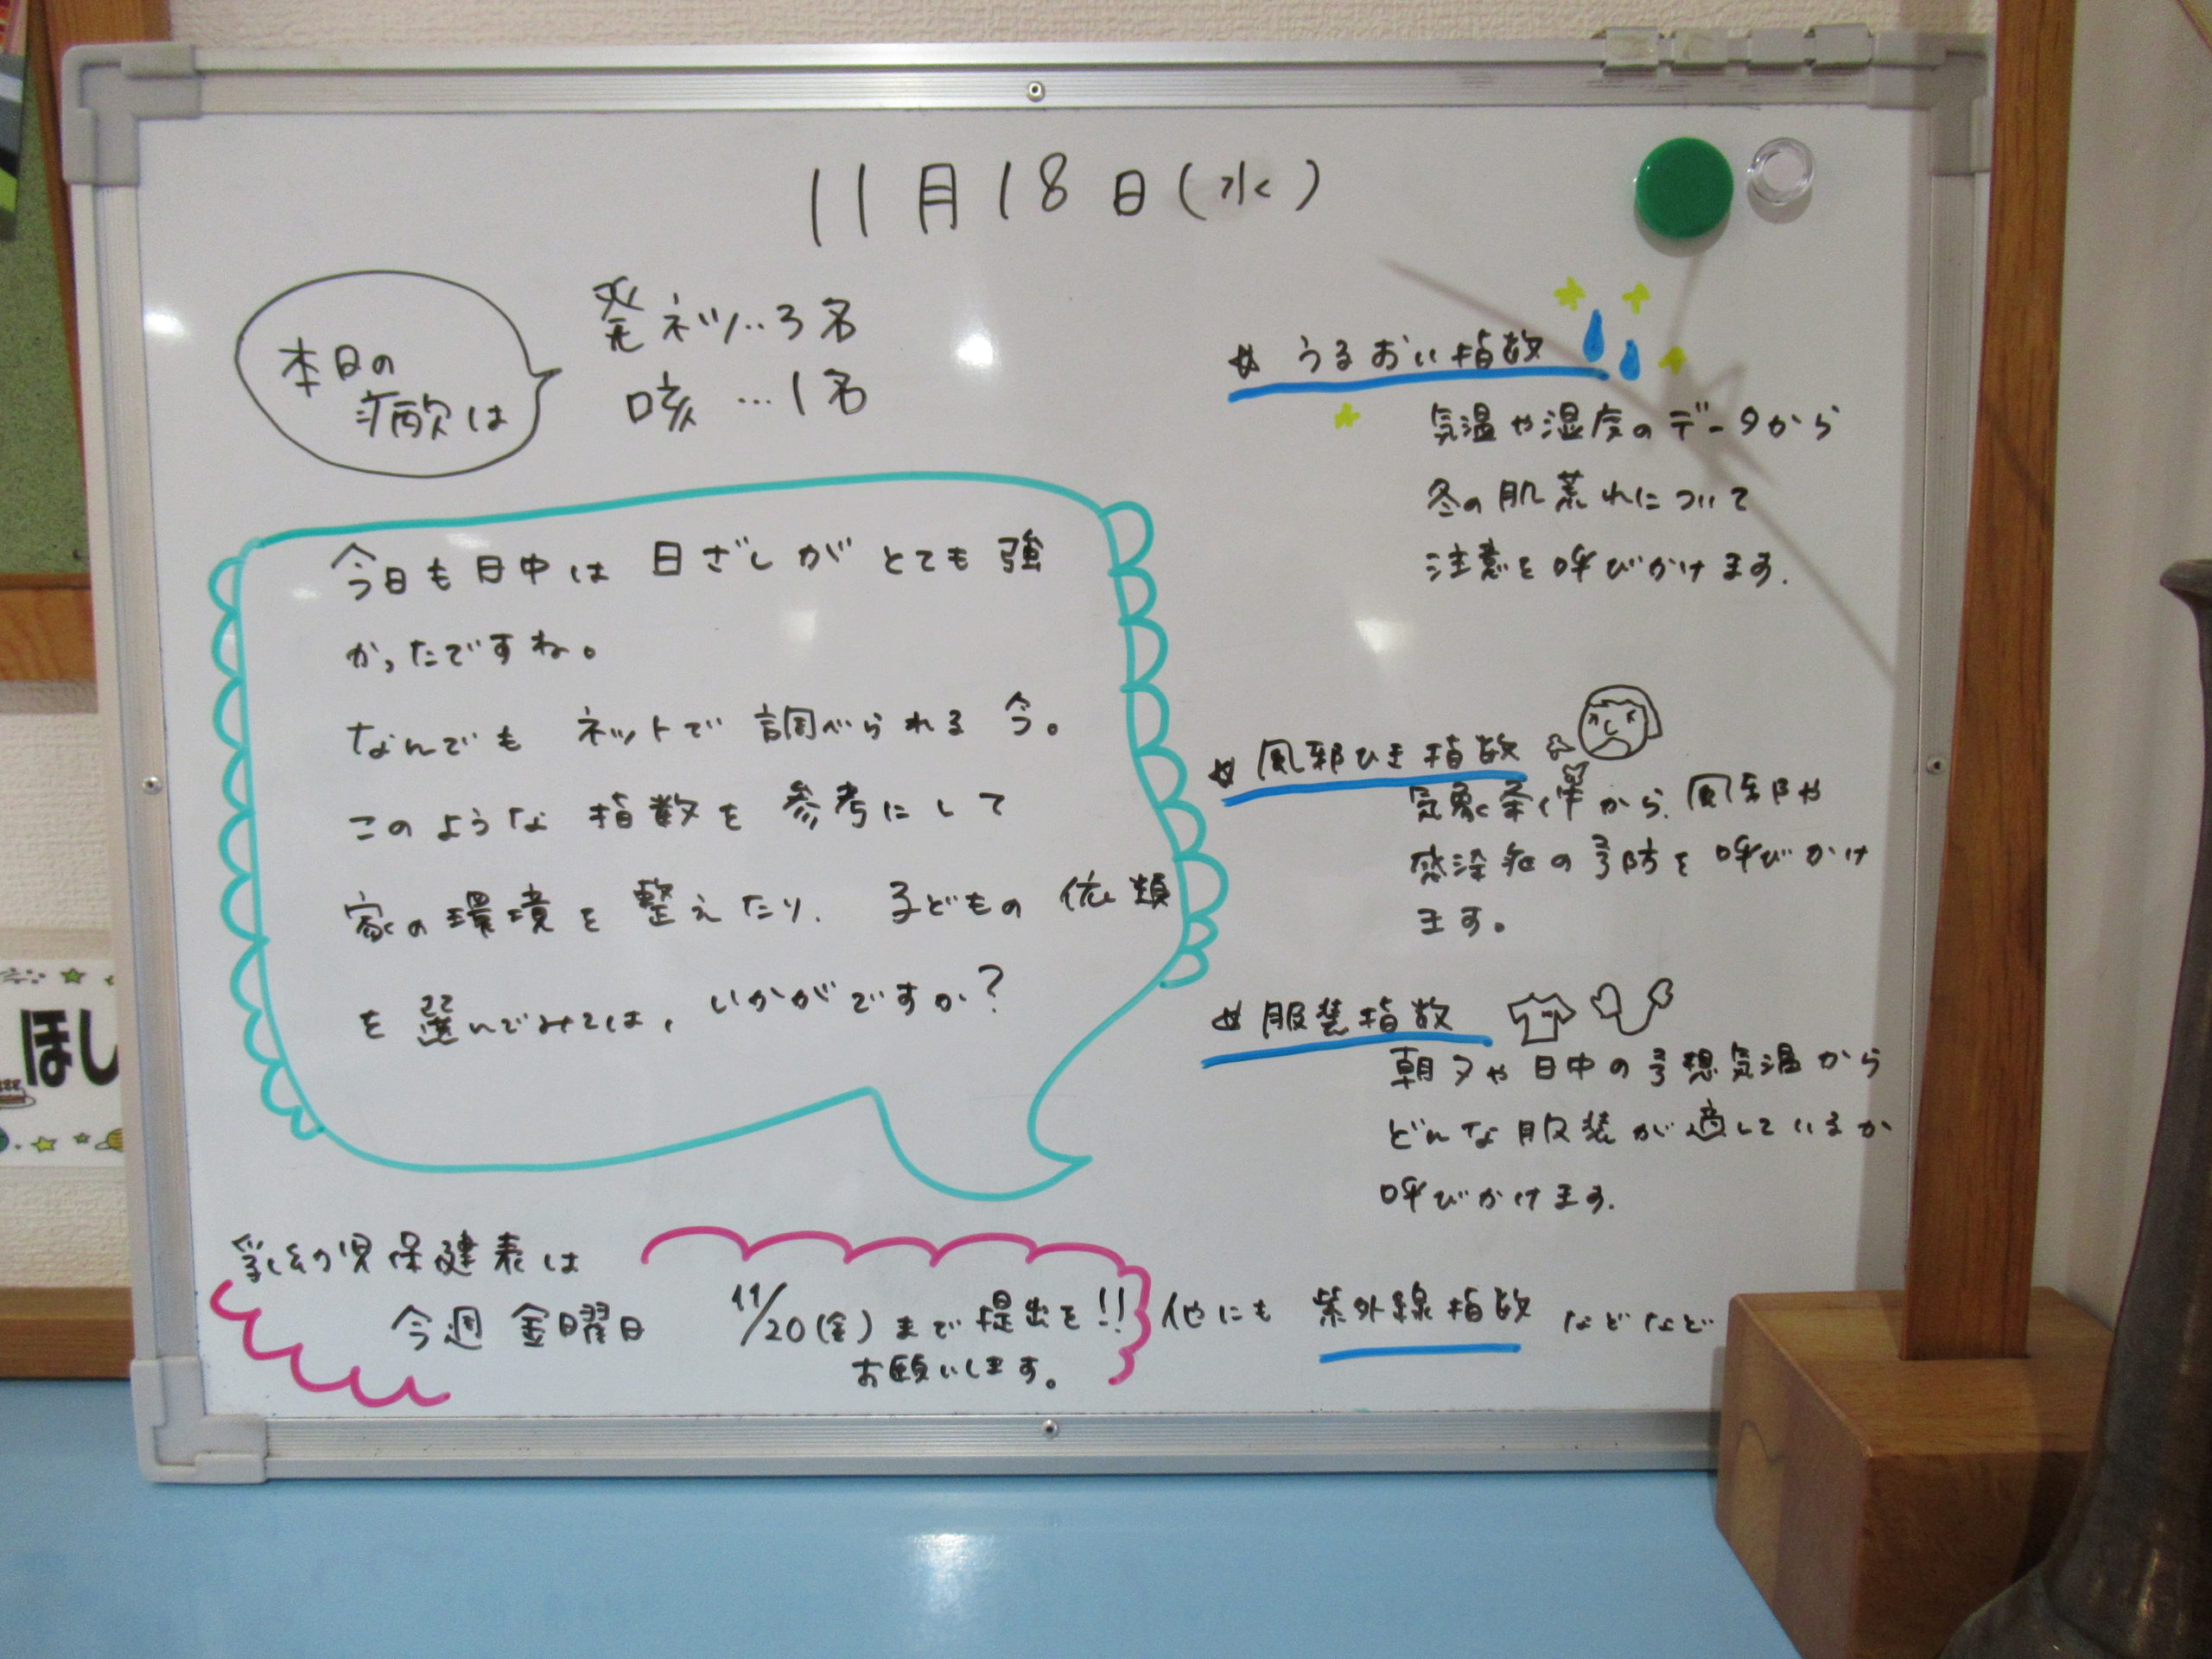 11月18日(水)
本日の
病欠は
発ネツ…3名
咳…1名
今日も日中は 日ざしが とても 強
かったですね。
なんでも ネットで 調べられる 今。
このような 指数を 参考にして
家の環境を 整えたり、子どもの 依類
を 選んでみては、いかがですか?
乳幼児保健表は
今週 金曜日 11/20(金)まで提出を!!
お願いします。
☆ うるおい指数
気温や湿度のデータから
冬の肌荒れについて
注意を呼びかけます.
☆ 風邪ひき指数
気象条件から、風邪や
感染症の予防を呼びかけ
ます。
☆ 服装指数
朝夕や日中の予想気温から
どんな服装が適しているか
呼びかけます.
他にも 紫外線指数 などなど
ほし